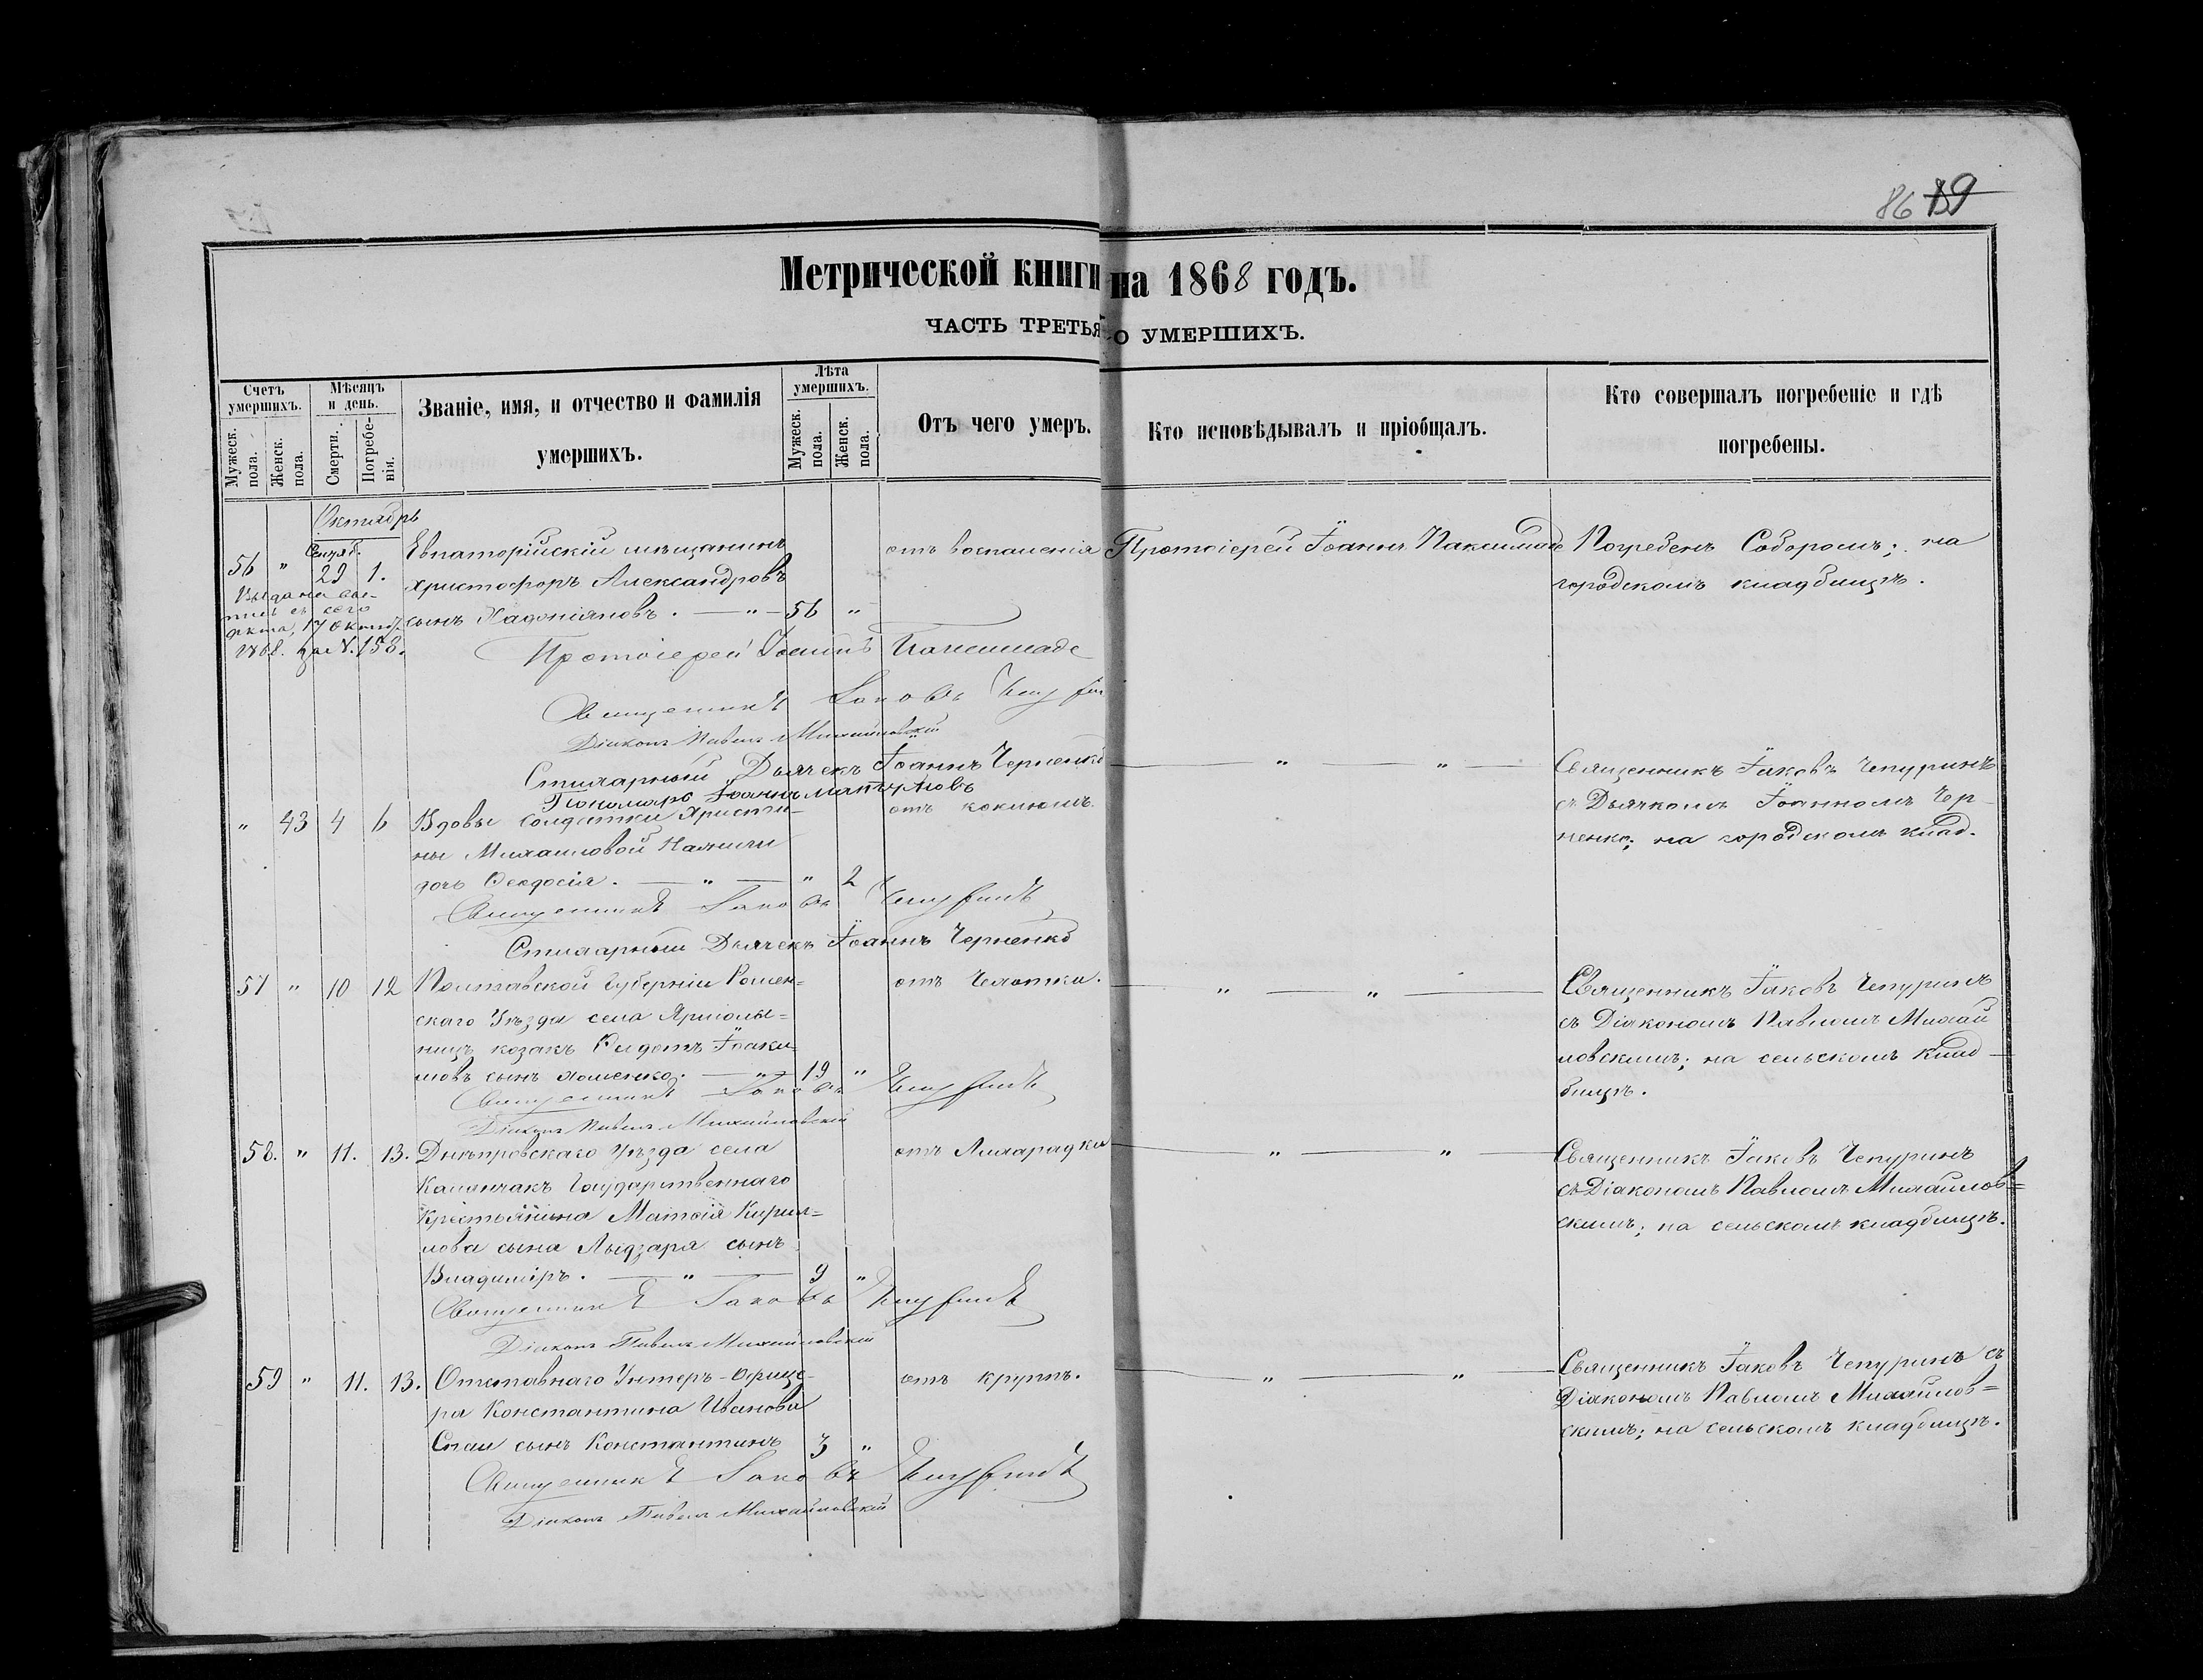 86 139
Метрической книги на 1868 годъ.
ЧАСТЬ ТРЕТЬЯ О УМЕРШИХЪ.
Счетъ умершихъ.
Мужеск. пола.
Женск. пола.
Мѣсяцъ и день.
Смерти.
Погребенія.
Званіе, имя, и отчество и фамилія
умершихъ.
Лѣта умершихъ.
Мужеск. пола.
Женск. пола.
Отъ чего умеръ.
Кто исповѣдывалъ и пріобщалъ.
Кто совершалъ погребеніе и гдѣ
погребены.
Октябрь
56 " Сентяб. 29 1. Евпаторійскій мѣщанинъ
Христофоръ Александровъ
сынъ — " — 56 "
отъ воспаленія
Протоіерей Іоаннъ
Погребенъ Соборомъ; на
городскомъ кладбищѣ.
Выдана
сего
акта, 17 Октяб.
1868. за N. 158.
Протоіерей Іоаннъ
Священникъ Іаковъ
Діаконъ Павелъ Михайловскій
Стихарный Дьячекъ Іоаннъ Черненко
Пономарь Іоаннъ
" 43 4 6 Вдовы солдатки Христи-
ны Михайловой
дочь Ѳеодосія. — " — " 2
отъ коклюша.
— " — " —
Священникъ Іаковъ Чепуринъ
съ Дьячкомъ Іоанномъ Чер-
ненко; на городскомъ клад.
Священникъ Іаковъ Чепуринъ
Стихарный Дьячекъ Іоаннъ Черненко
57 " 10 12 Полтавской Губерніи Ромен=
скаго Уѣзда села Ярмолы=
нецъ козакъ Іоаки=
мовъ сынъ Хоменко. — " — 19 "
отъ Чахотки.
— " — " —
Священникъ Іаковъ Чепуринъ
съ Діакономъ Павломъ Михай
ловскимъ; на сельскомъ клад-
бищѣ.
Священникъ Іаковъ Чепуринъ
Діаконъ Павелъ Михайловскій
58. " 11. 13. Днѣпровскаго Уѣзда села
Каланчакъ Государственнаго
Крестьянина Матѳія Кирил=
лова сына сынъ
Владиміръ. — " — 9 "
отъ Лихарадки
— " — " —
Священникъ Іаковъ Чепуринъ
съ Діакономъ Павломъ Михайлов=
скимъ; на сельскомъ кладбищѣ.
Священникъ Іаковъ Чепуринъ
Діаконъ Павелъ Михайловскій
59 " 11. 13. Отставнаго Унтеръ-Офице-
ра Константина Иванова
сынъ Константинъ 3 "
отъ крупа.
— " — " —
Священникъ Іаковъ Чепуринъ съ
Діакономъ Павломъ Михайлов=
скимъ; на сельскомъ кладбищѣ.
Священникъ Іаковъ Чепуринъ
Діаконъ Павелъ Михайловскій